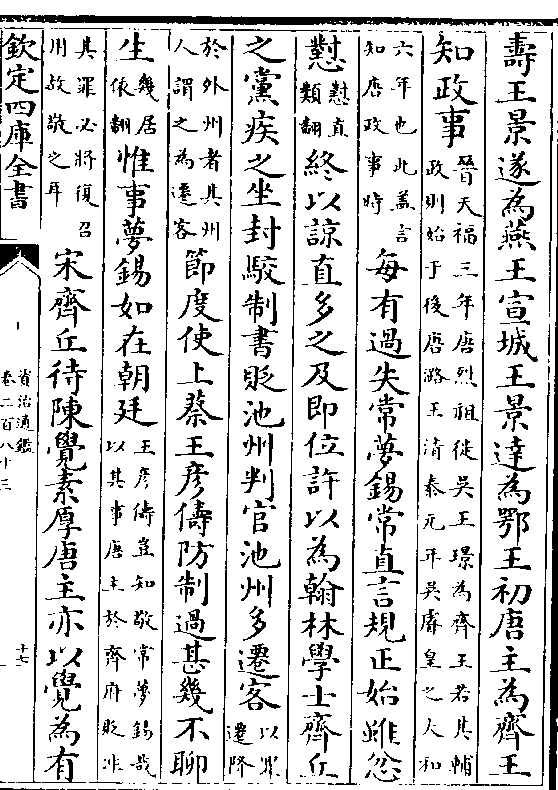 壽王景遂為燕王宣城王景達為鄂王初唐主為齊王
知政事晉天福三年唐烈祖徙吳王璟為齊王若其輔
政則始于後唐潞王清泰元年吳睿皇之大和
六年也此蓋言
知唐政事時每有過失常夢錫常直言規正始雖忿
懟懟直
類翻終以諒直多之及即位許以為翰林學士齊丘
之黨疾之坐封駮制書貶池州判官池州多遷客以罪
遷降
於外州者其州
人謂之為遷客節度使上蔡王彥儔防制過甚幾不聊
生幾居
依翻惟事夢錫如在朝廷王彥儔豈知敬常夢錫哉
以其事唐主於齊府貶非
其罪必將復召
用故敬之耳宋齊丘待陳覺素厚唐主亦以覺為有
欽定四庫全書
資治通鑑
卷二百八十三
十七